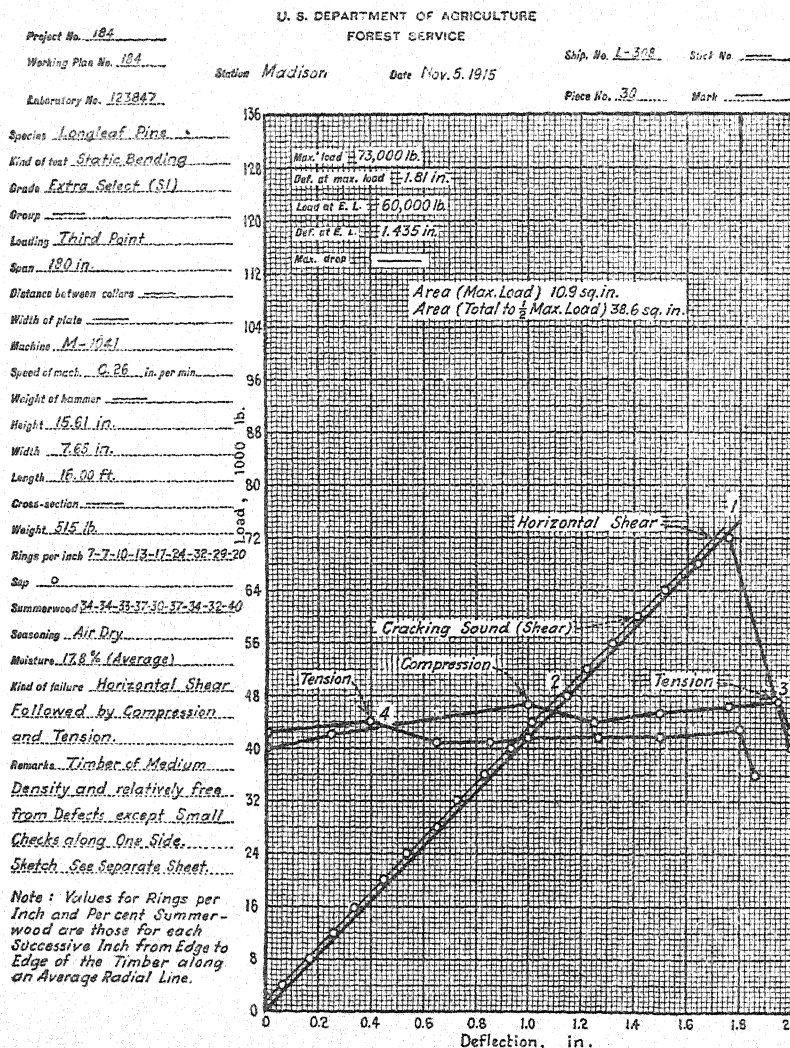 U. S. DEPARTMENT OF AGRICULTURE
FOREST SERVICE
Project No. 184
Working Plan No. 184
Laboratory No. 123847
Station Madison
Date Nov. 5. 1915
Ship. No. L-308
Stick No.
Piece No. 30
Mark
Species Longleaf Pine
Kind of test Static Bending
Grade Extra Select (S1)
Group
Loading Third Point
Span 180 in.
Distance between collars
Width of plate
Machine M-1041
Speed of mach. 0.26 in. per min.
Weight of hammer
Height 15.61 in.
Width 7.65 in.
Length 16.00 ft.
Cross-section
Weight 515 lb.
Rings per inch 7-7-10-13-17-24-32-29-20
Sap 0
Summerwood 34-34-33-37-30-37-34-32-40
Seasoning Air Dry
Moisture 17.8 % (Average)
Kind of failure Horizontal Shear
Followed by Compression
and Tension.
Remarks Timber of Medium
Density and relatively free
from Defects except Small
Checks along One Side.
Sketch See Separate Sheet.
Note : Values for Rings per
Inch and Per cent Summer-
wood are those for each
Successive Inch from Edge to
Edge of the Timber along
an Average Radial Line.
Max. load = 73,000 lb.
Def. at max. load = 1.81 in.
Load at E. L. = 60,000 lb.
Def. at E. L. = 1.435 in.
Max. drop
Area (Max. Load) 10.9 sq. in.
Area (Total to ½ Max. Load) 38.6 sq. in.
Load, 1000 lb.
136
128
120
112
104
96
88
80
72
64
56
48
40
32
24
16
8
0
1
Horizontal Shear
Cracking Sound (Shear)
Compression
2
Tension
3
Tension
4
0 0.2 0.4 0.6 0.8 1.0 1.2 1.4 1.6 1.8 2.
Deflection, in.